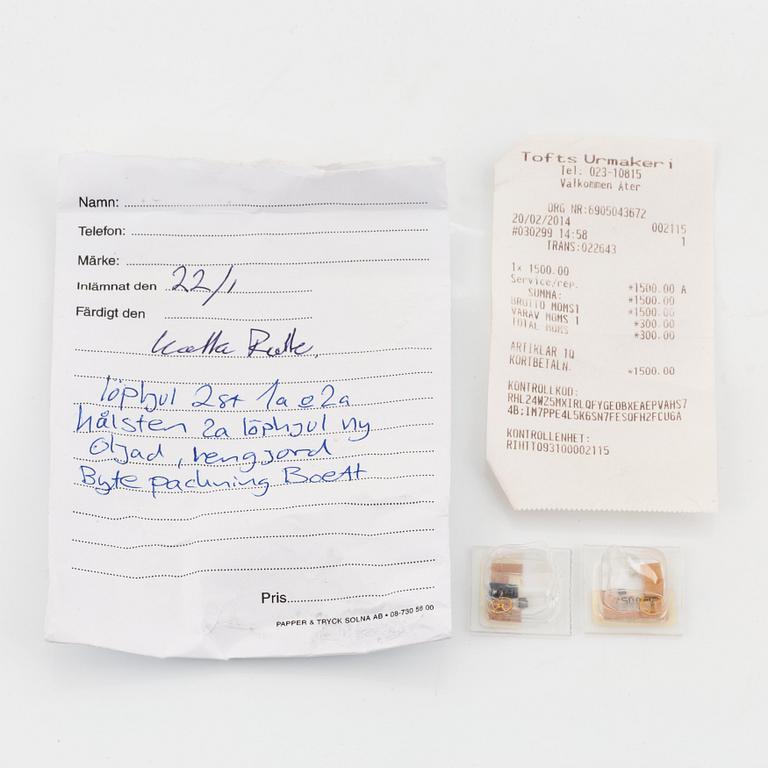 Namn:
Telefon:
Märke:
Inlämnat den 22/1
Färdigt den
Kolla
löphjul 2st 1a o 2a
hålsten 2a löphjul ny
oljad, rengjord
Byte packning Boett
Pris
PAPPER & TRYCK SOLNA AB • 08-730 56 00
Tofts Urmakeri
Tel: 023-10815
Välkommen Åter
ORG NR:6905043672
20/02/2014 002115
#030299 14:58 1
TRANS:022643
1x 1500.00
Service/rep. *1500.00 A
SUMMA: *1500.00
BRUTTO MOMS1 *1500.00
VARAV MOMS 1 *300.00
TOTAL MOMS *300.00
ARTIKLAR 1Q
KORTBETALN. *1500.00
KONTROLLKOD:
RHL24W25MXIRLQFYGEOBXEAEPVAHS7
4B:IM7PPE4L5K6SN7FESQFH2FCUGA
KONTROLLENHET:
RIHTT093100002115